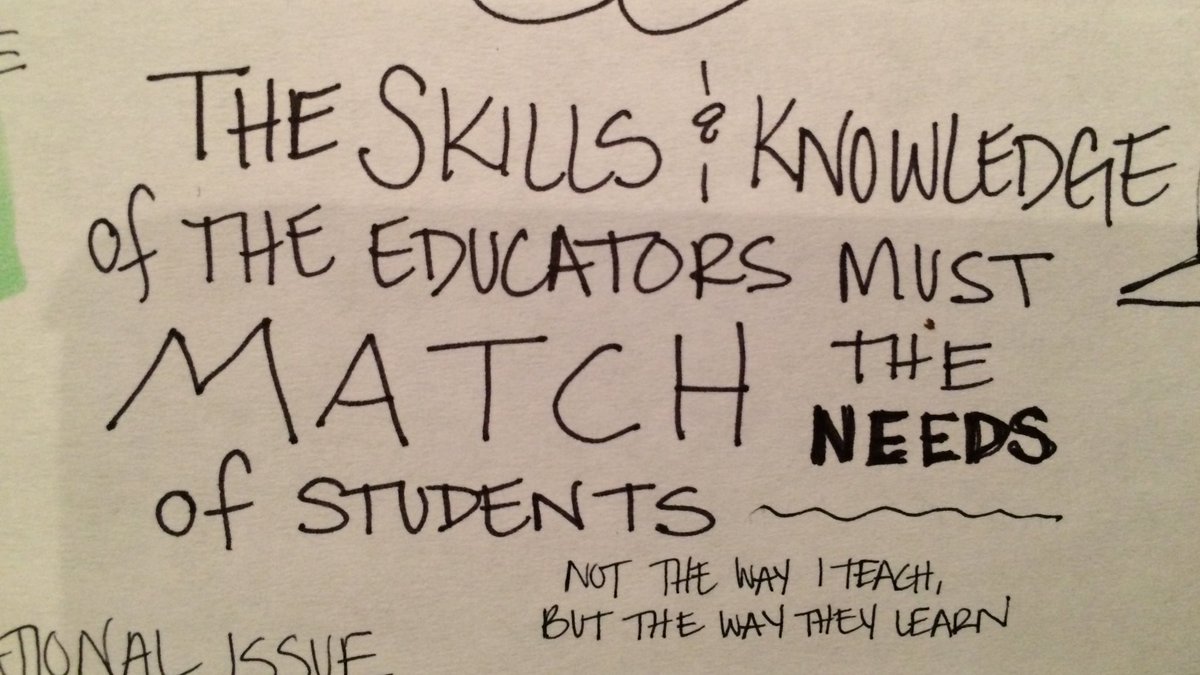 THE SKILLS & KNOWLEDGE
of THE EDUCATORS MUST
MATCH THE
NEEDS
of STUDENTS
NOT THE WAY I TEACH,
BUT THE WAY THEY LEARN
ISSUE